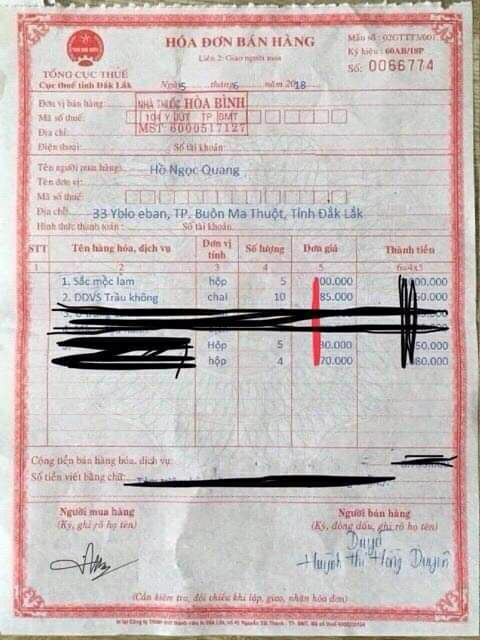 HÓA ĐƠN BÁN HÀNG
Liên 2: Giao người mua
Mẫu số: 02GTTT3/001
Ký hiệu: 60AB/18P
Số: 0066774
TỔNG CỤC THUẾ
Cục thuế tỉnh Đắk Lắk
Ngày 5 tháng 6 năm 2018
Đơn vị bán hàng: NHÀ THUỐC HÒA BÌNH
Mã số thuế: 104 Y JÚT TP BMT
Địa chỉ: MST 6000517127
Điện thoại: Số tài khoản:
Tên người mua hàng: Hồ Ngọc Quang
Tên đơn vị:
Mã số thuế:
Địa chỉ: 33 Yblo eban, TP. Buôn Ma Thuột, Tỉnh Đắk Lắk
Hình thức thanh toán: Số tài khoản:
STT Tên hàng hóa, dịch vụ Đơn vị tính Số lượng Đơn giá Thành tiền
1 2 3 4 5 6=4x5
1. Sắc mộc lam hộp 5 00.000 000.000
2. DDVS Trầu không chai 10 85.000 50.000
Hộp 5 30.000 50.000
hộp 4 70.000 80.000
Cộng tiền bán hàng hóa, dịch vụ:
Số tiền viết bằng chữ:
Người mua hàng
(Ký, ghi rõ họ tên)
Người bán hàng
(Ký, đóng dấu, ghi rõ họ tên)
Duyên
Huỳnh Thị Hồng Duyên
(Cần kiểm tra, đối chiếu khi lập, giao, nhận hóa đơn)